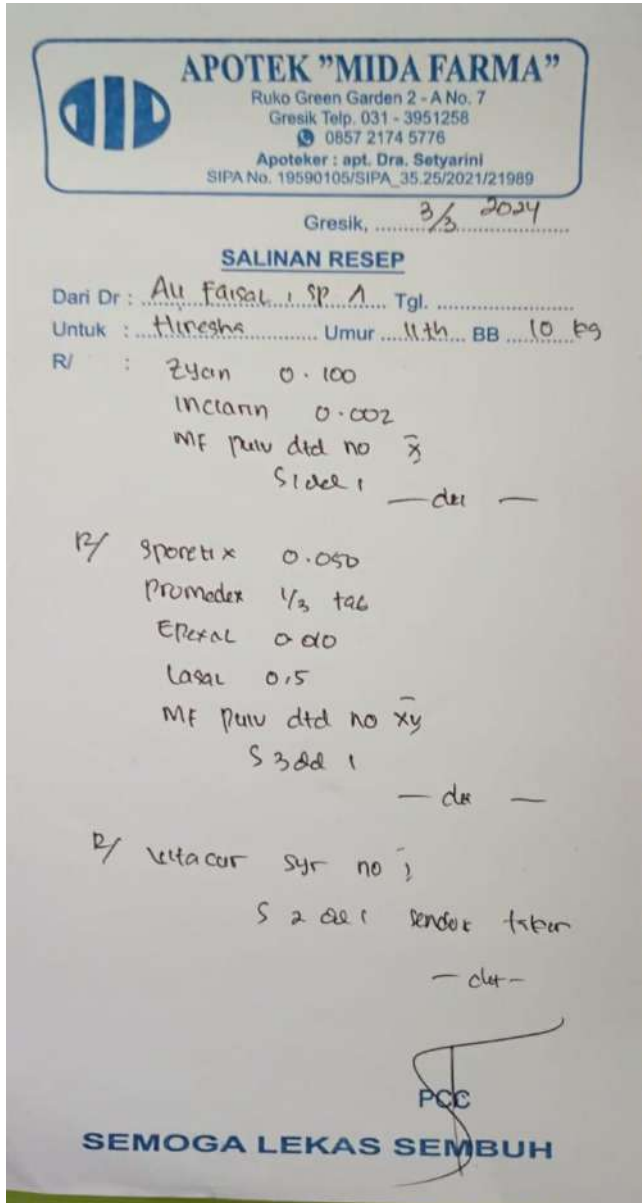 APOTEK "MIDA FARMA"
Ruko Green Garden 2 - A No. 7
Gresik Telp. 031 - 3951258
0857 2174 5776
Apoteker : apt. Dra. Setyarini
SIPA No. 19590105/SIPA_35.25/2021/21989
Gresik, 3/3 2024
SALINAN RESEP
Dari Dr : Ali Faisal, SP A Tgl.
Untuk : Hiresha Umur 11 th BB 10 kg
R/ : Zycin 0.100
0.002
MF pulv dtd no X
S 1 dd 1
— det —
R/ Sporetix 0.050
Promedex 1/3 tab
Epexal 0.010
Lasal 0,5
MF pulv dtd no XV
S 3 dd 1
— det —
R/ syr no I
S 2 dd 1 sendok takar
— det —
PCC
SEMOGA LEKAS SEMBUH